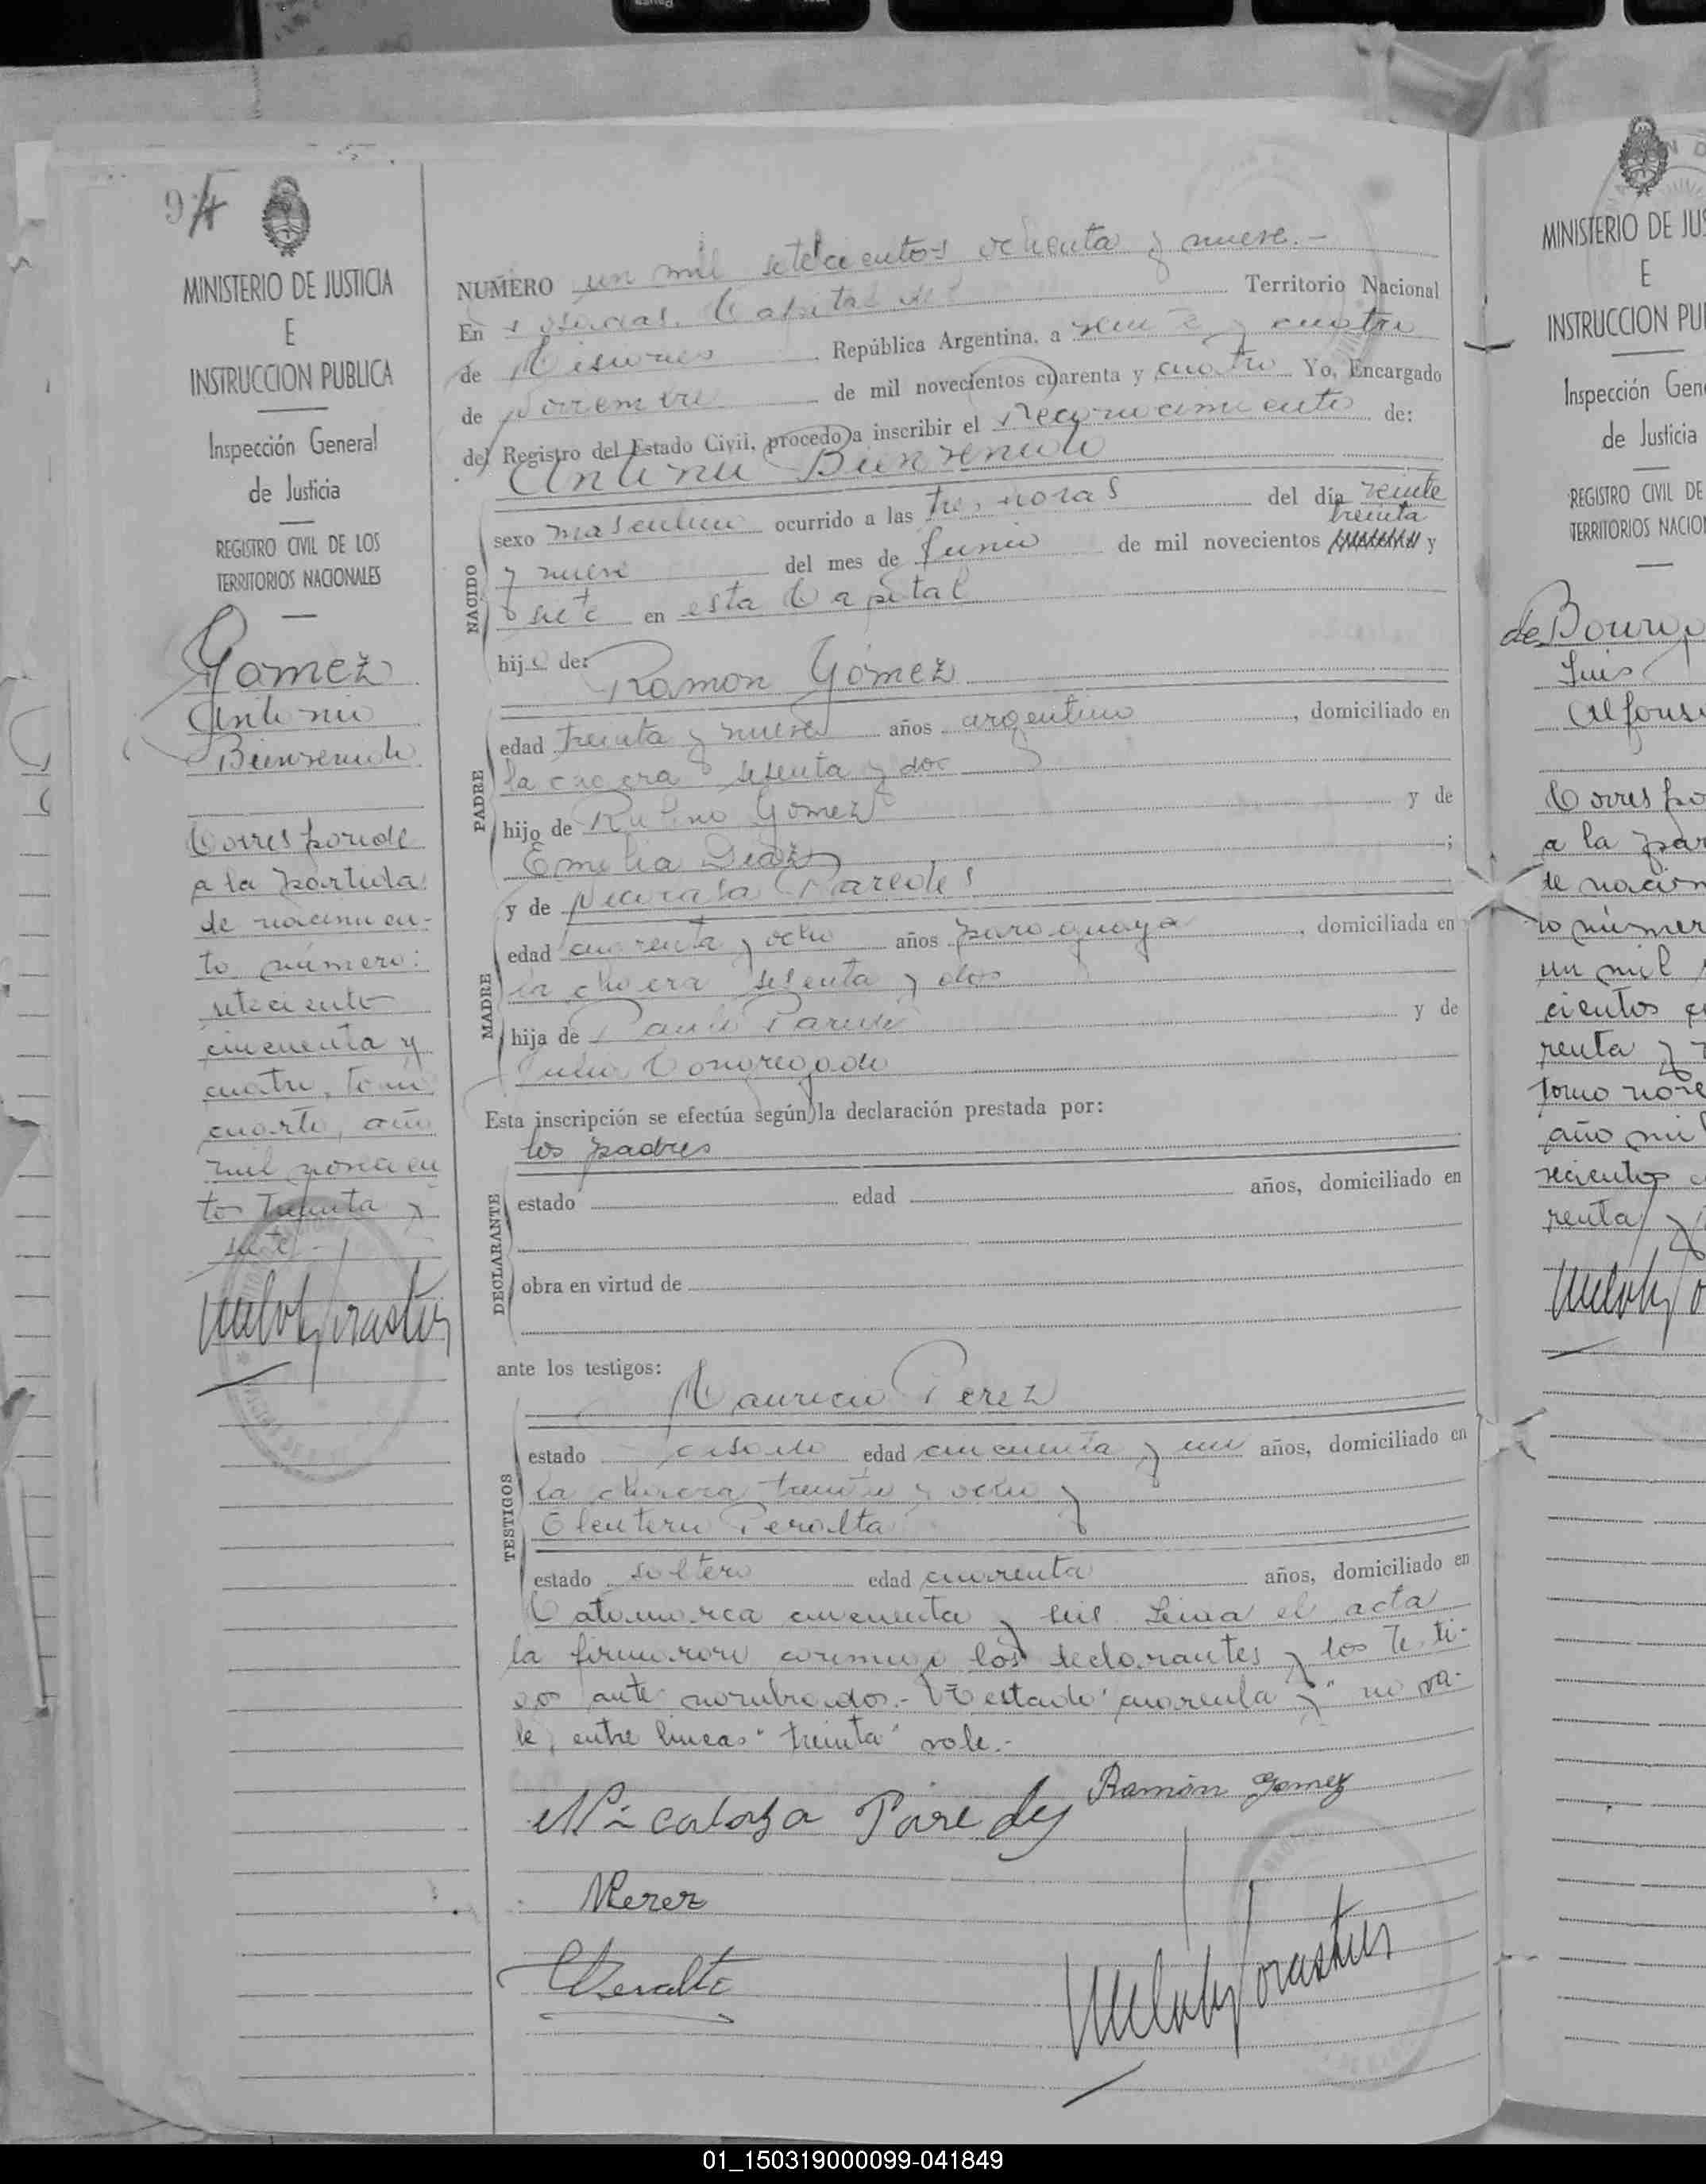 94
MINISTERIO DE JUSTICIA
E
INSTRUCCION PUBLICA
Inspección General
de Justicia
REGISTRO CIVIL DE LOS
TERRITORIOS NACIONALES
Gomez
Antonio
Bienvenido
Corresponde
a la partida
de nacimien-
to número:
setecientos
cincuenta y
cuatro, tomo
cuarto, año
mil novecien
tos treinta y
siete.-
NUMERO un mil setecientos ochenta y nueve.-
En Posadas, Capital del Territorio Nacional
de Misiones República Argentina, a veinte y cuatro
de Noviembre de mil novecientos cuarenta y cuatro Yo, Encargado
del Registro del Estado Civil, procedo a inscribir el Reconocimiento de:
Antonio Bienvenido
NACIDO
sexo masculino ocurrido a las tres horas del día veinte
y nueve del mes de Junio de mil novecientos treinta y
siete en esta Capital
hijo de:
Ramon Gómez
PADRE
edad treinta y nueve años argentino, domiciliado en
la chacra setenta y dos
hijo de Rufino Gomez y de
Emilia Diaz;
y de Nicolasa Paredes
MADRE
edad cuarenta y ocho años paraguaya, domiciliada en
la chacra setenta y dos
hija de Paredes y de
Esta inscripción se efectúa según la declaración prestada por:
los padres
DECLARANTE
estado edad años, domiciliado en
obra en virtud de
ante los testigos:
Mauricio Perez
TESTIGOS
estado casado edad cincuenta y un años, domiciliado en
la chacra treinta y ocho y
Eleuterio Peralta
estado soltero edad cuarenta años, domiciliado en
Catamarca cincuenta y seis Leida el acta
la firmaron conmigo los declarantes y los testi-
gos ante nombrados.- Testado "cuarenta y" no va-
le, entre lineas "treinta" vale.-
Ramón Gomez
Nicalasa Paredes
MPerez
EPeralta
MINISTERIO DE JUS
E
INSTRUCCION PU
Inspección Gen
de Justicia
REGISTRO CIVIL DE
TERRITORIOS NACIO
Luis
Alfons
Corres po
a la par
de nacim
to númer
un mil
cientos
renta y
tomo nove
año mi
vecientos
renta y
01_150319000099-041849